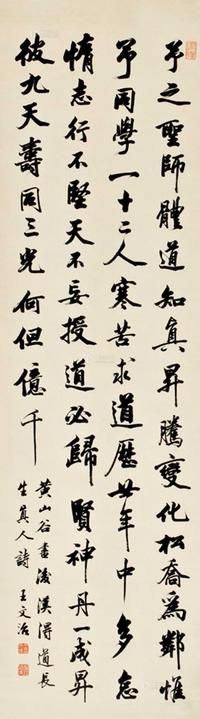 予之聖師體道知真昇騰變化松喬為鄰惟
予同學一十二人寒苦求道歷廿年中多怠
惰志行不堅天不妄授道必歸賢神丹一成昇
彼九天壽同三光何但億千
黃山谷書後漢得道長
生真人詩 王文治